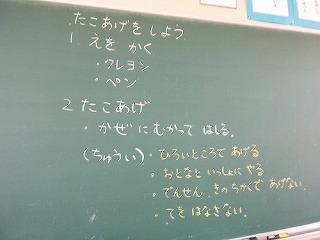 .たこあげをしよう
1. えを かく
・クレヨン
・ペン
2 たこあげ
・かぜにむかって はしる。
(ちゅうい)・ひろいところで あげる
・おとなと いっしょに やる
・でんせん、きのちかくで あげない。
・てを はなさない。